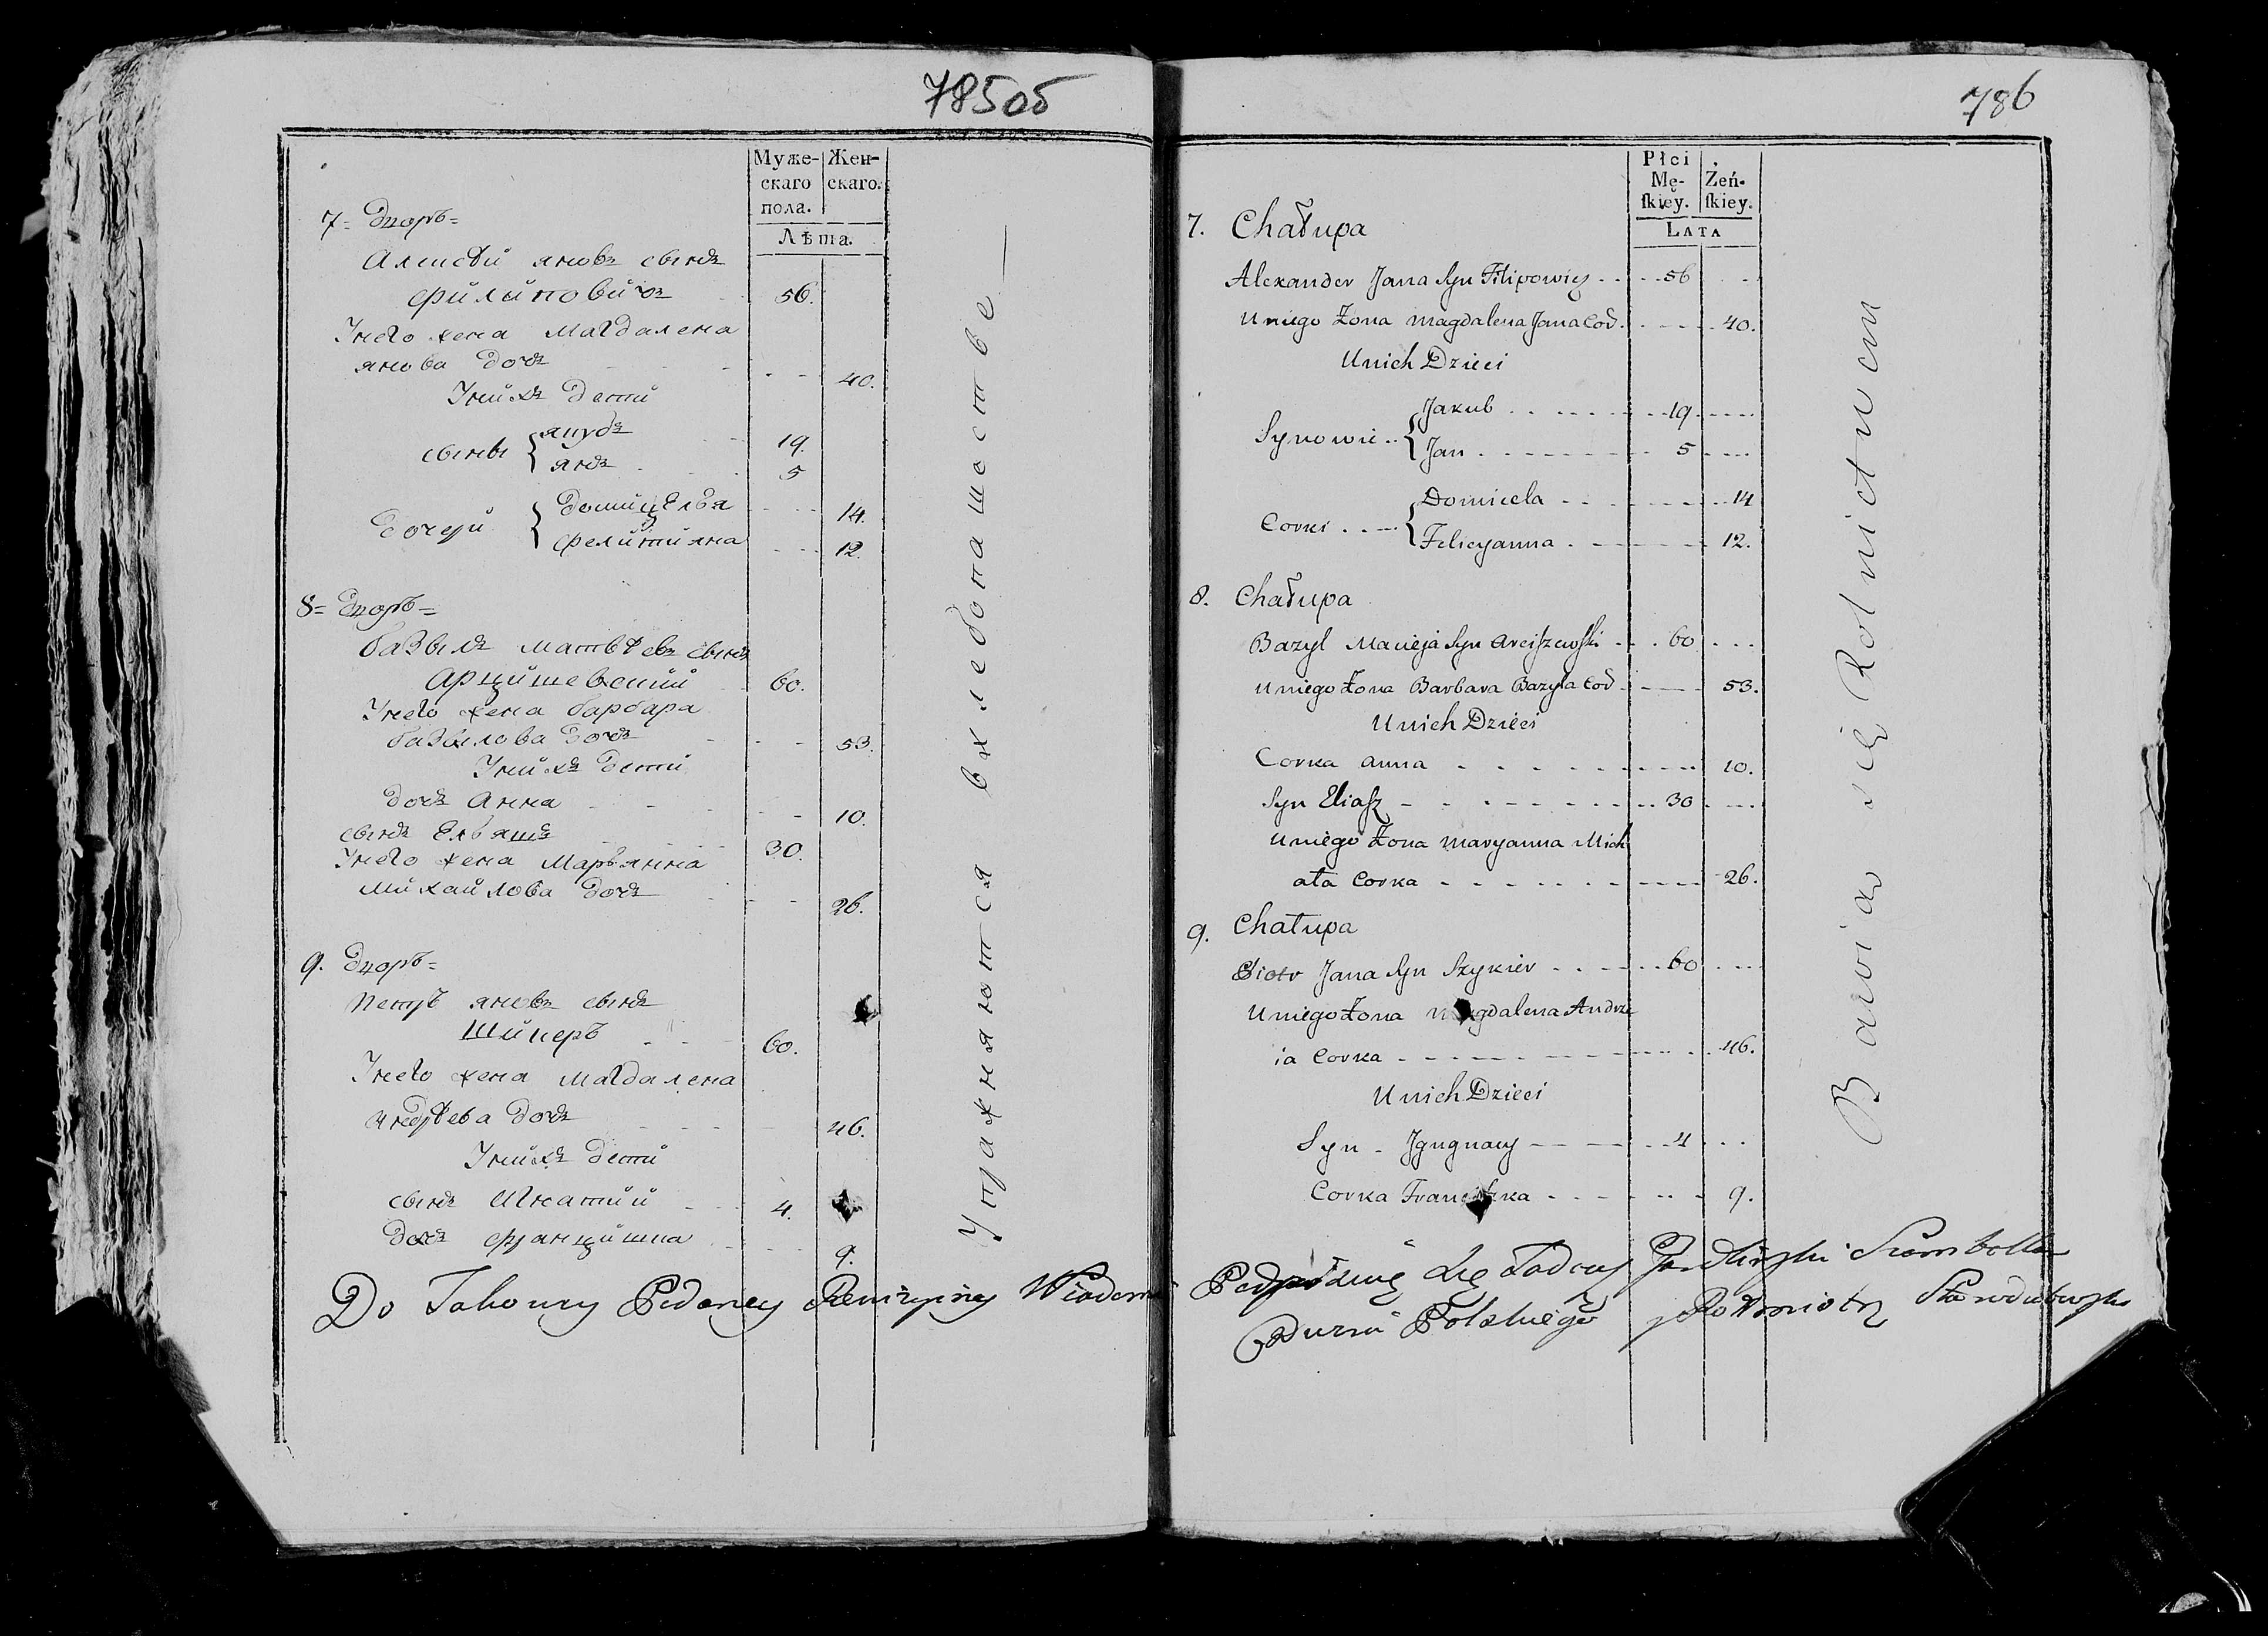 785об
Муже-
скаго
пола.
Жен-
скаго.
Лѣта.
7 = Дворъ =
Алексѣй яновъ сынъ
Филиповичъ 56.
Унего жена Магдалена
янова дочь 40.
Унихъ дети
сыны { якубъ 19.
янъ 5
дочери { домицеля 14.
Фелитияна 12.
8 = Дворъ =
базыль матвѣевъ сынъ
Арцишевский 60.
Унего жена барбара
базылова дочь 53.
Унихъ дети
дочь Анна 10.
сынъ Ельяшъ 30.
Унего жена Марьянна
михайлова дочь 26.
9. Дворъ =
петръ яновъ сынъ
Шикеръ 60.
Унего жена Магдалена
андрѣева дочь 46.
Унихъ дети
сынъ Игнатий 4.
дочь францишка 9.
Упражняются в хлебопашестве
Do Takowey Podaney Rewizyiney Wiadom
786
Płci
Mę-
ſkiey.
Żeń-
ſkiey.
LATA
7. Chałupa
Alexander Jana Syn Filipowicz 56
U niego Żona Magdalena Jana Cod. 40.
U nich Dzieci
Synowie { Jakub 19
Jan 5
Corki { Domicela 14
Felicyanna 12.
8. Chałupa
Bazyl Macieja Syn Arciszewski 60
U niego Żona Barbara Bazyla Cod 53.
U nich Dzieci
Corka Anna 10.
Syn Eliasz 30
U niego Żona Maryanna Mich
ała Corka 26.
9. Chałupa
Piotr Jana Syn Szykier 60
U niego Żona Magdalena Andrze
ia Corka 46.
U nich Dzieci
Syn - Jgngnacy 4
Corka Franciszka 9.
Bawią się Rolnictwem
Podpisuię Się Tadeusz
Polskiego y Rotmistrz Starodubowski